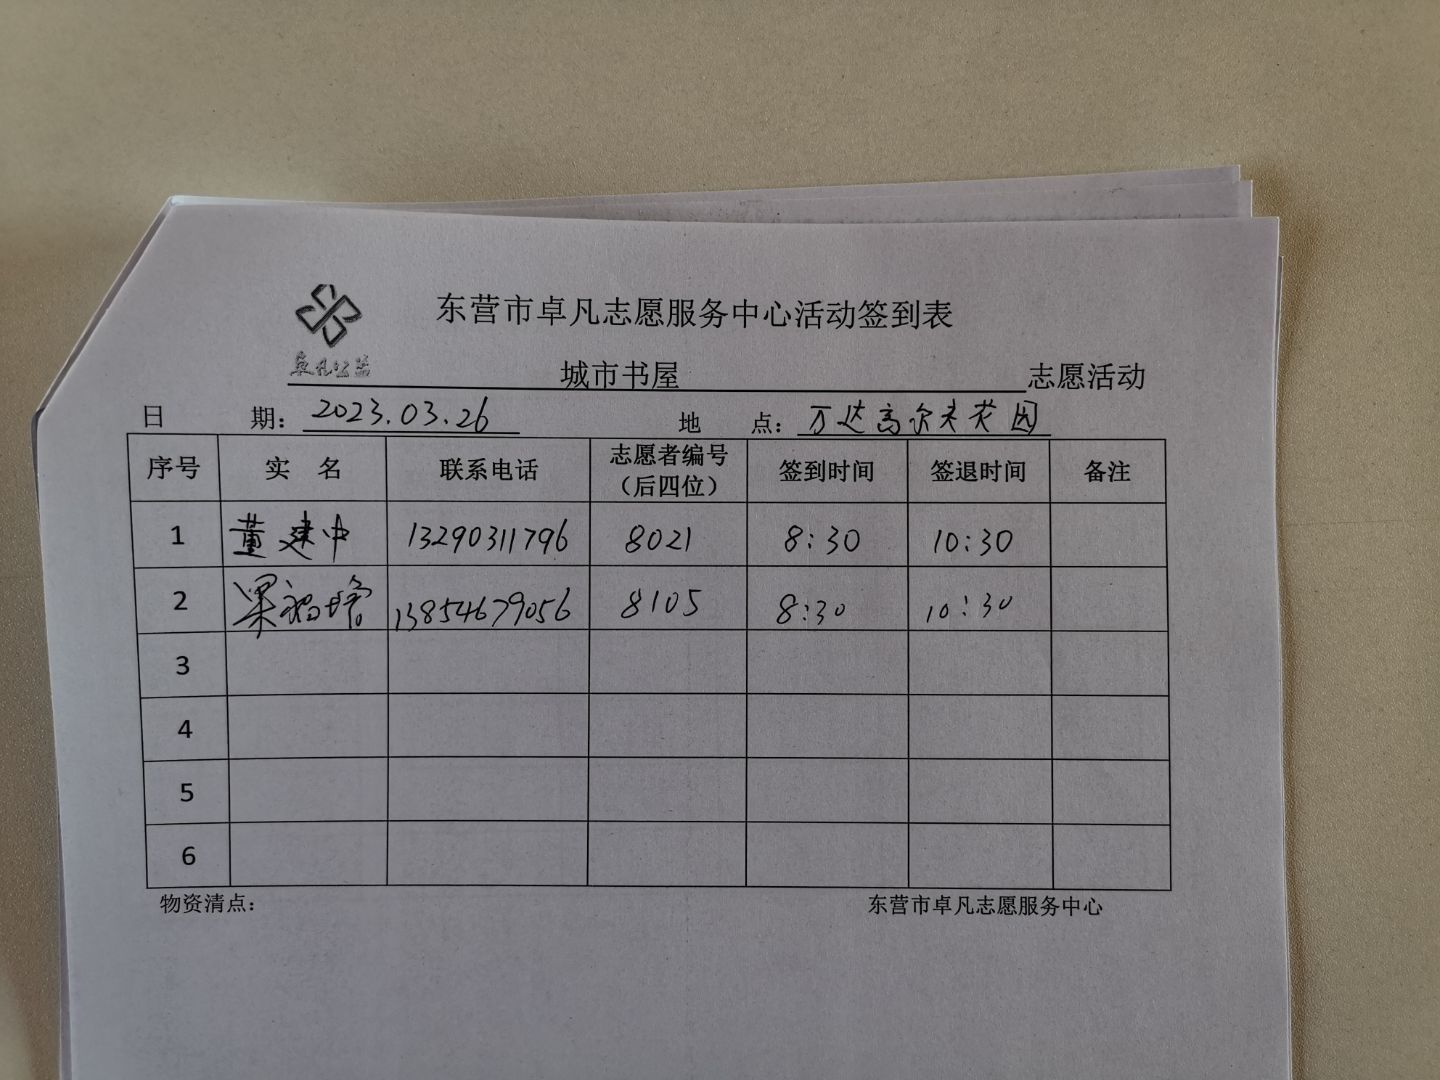 东营市卓凡志愿服务中心活动签到表
卓凡公益
城市书屋 志愿活动
日 期： 2023.03.26 地 点： 万达高尔夫花园
序号 实 名 联系电话 志愿者编号（后四位） 签到时间 签退时间 备注
1 董建中 13290311796 8021 8:30 10:30
2 梁 13854679056 8105 8:30 10:30
3
4
5
6
物资清点： 东营市卓凡志愿服务中心